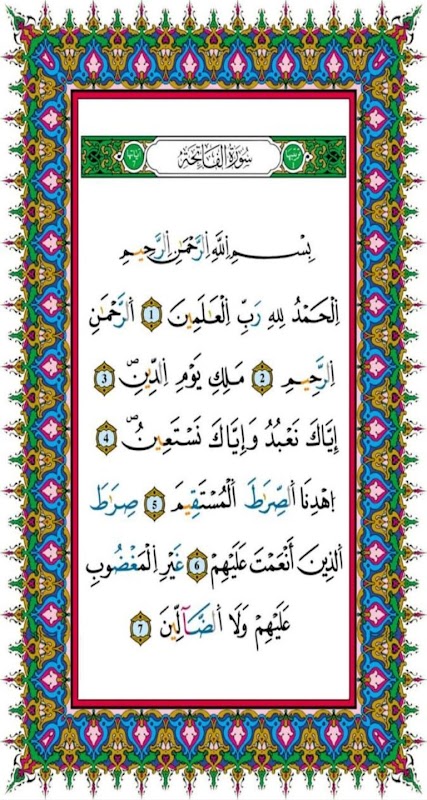 سُورَةُ الْفَاتِحَةِ
بِسْمِ اِللَّهِ اِلرَّحْمَٰنِ اِلرَّحِيمِ
اِلْحَمْدُ لِلهِ رَبِّ اِلْعَٰلَمِينَ 1 اَلرَّحْمَٰنِ
اِلرَّحِيمِ 2 مَلِكِ يَوْمِ اِلدِّينِۖ 3
إِيَّاكَ نَعْبُدُ وَإِيَّاكَ نَسْتَعِينُۖ 4
اُهْدِنَا اَلصِّرَٰطَ اَلْمُسْتَقِيمَ 5 صِرَٰطَ
اَلذِينَ أَنْعَمْتَ عَلَيْهِمْ 6 غَيْرِ اِلْمَغْضُوبِ
عَلَيْهِمْ وَلَا اَلضَّآلِّينَ 7